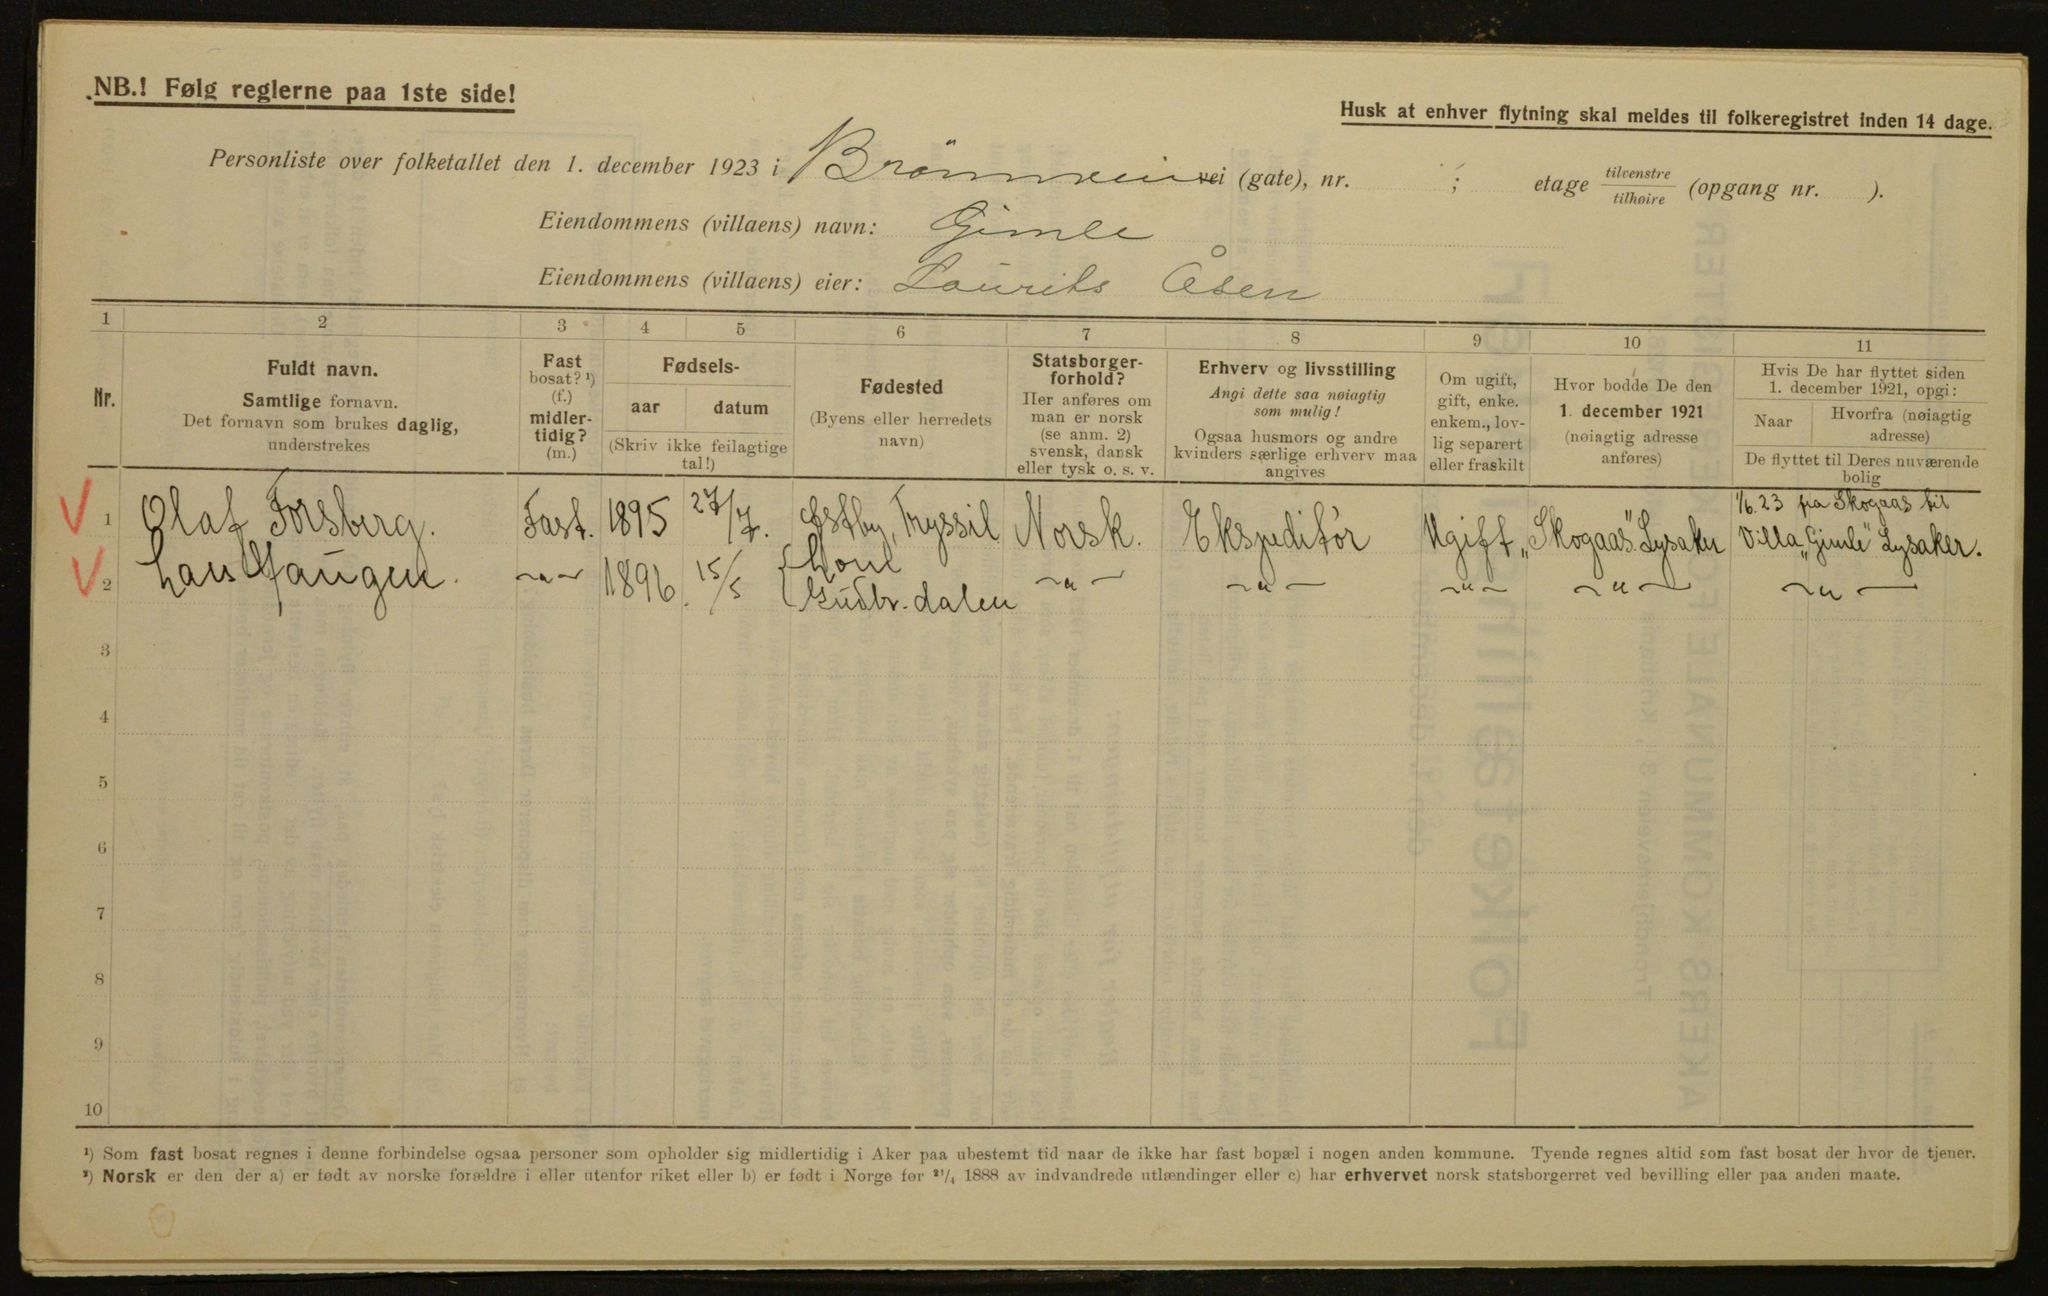 NB.! Følg reglerne paa 1ste side!
Husk at enhver flytning skal meldes til folkeregistret inden 14 dage.
Personliste over folketallet den 1. december 1923 i vei (gate), nr. ; etage tilvenstre / tilhøire (opgang nr. ).
Eiendommens (villaens) navn: Gimle
Eiendommens (villaens) eier: Laurits Åsen
1 2 3 4 5 6 7 8 9 10 11
Nr.
Fuldt navn.
Samtlige fornavn.
Det fornavn som brukes daglig,
understrekes
Fast
bosat? ¹)
(f.)
midler-
tidig?
(m.)
Fødsels-
aar datum
(Skriv ikke feilagtige
tal!)
Fødested
(Byens eller herredets
navn)
Statsborger-
forhold?
Her anføres om
man er norsk
(se anm. 2)
svensk, dansk
eller tysk o. s. v.
Erhverv og livsstilling
Angi dette saa nøiagtig
som mulig!
Ogsaa husmors og andre
kvinders særlige erhverv maa
angives
Om ugift,
gift, enke.
enkem., lov-
lig separert
eller fraskilt
Hvor bodde De den
1. december 1921
(nøiagtig adresse
anføres)
Hvis De har flyttet siden
1. december 1921, opgi:
Naar Hvorfra (nøiagtig
adresse)
De flyttet til Deres nuværende
bolig
1 Olaf Forsberg. Fast. 1895 27/7. Østby, Tryssil Norsk. Ekspeditør Ugift „Skogaas" Lysaker 1/6.23 fra Skogaas til
Villa „Gimle" Lysaker.
2 Haugen. -"- 1896. 15/5 -"- -"- -"- -"- -"-
Gudbr. dalen
3
4
5
6
7
8
9
10
¹) Som fast bosat regnes i denne forbindelse ogsaa personer som opholder sig midlertidig i Aker paa ubestemt tid naar de ikke har fast bopæl i nogen anden kommune. Tyende regnes altid som fast bosat der hvor de tjener.
²) Norsk er den der a) er født av norske forældre i eller utenfor riket eller b) er født i Norge før ²¹/₄ 1888 av indvandrede utlændinger eller c) har erhvervet norsk statsborgerret ved bevilling eller paa anden maate.